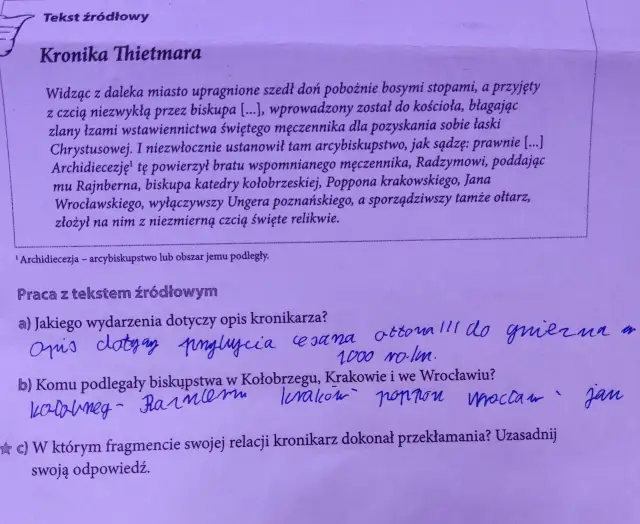 Tekst źródłowy
Kronika Thietmara
Widząc z daleka miasto upragnione szedł doń pobożnie bosymi stopami, a przyjęty
z czcią niezwykłą przez biskupa [...], wprowadzony został do kościoła, błagając
zlany łzami wstawiennictwa świętego męczennika dla pozyskania sobie łaski
Chrystusowej. I niezwłocznie ustanowił tam arcybiskupstwo, jak sądzę: prawnie [...]
Archidiecezję¹ tę powierzył bratu wspomnianego męczennika, Radzymowi, poddając
mu Rajnberna, biskupa katedry kołobrzeskiej, Poppona krakowskiego, Jana
Wrocławskiego, wyłączywszy Ungera poznańskiego, a sporządziwszy tamże ołtarz,
złożył na nim z niezmierną czcią święte relikwie.
¹ Archidiecezja – arcybiskupstwo lub obszar jemu podległy.
Praca z tekstem źródłowym
a) Jakiego wydarzenia dotyczy opis kronikarza?
Opis dotyczy przybycia cesarza ottona III do gniezna w
1000 rok.
b) Komu podlegały biskupstwa w Kołobrzegu, Krakowie i we Wrocławiu?
kraków - poppon wrocław - jan
c) W którym fragmencie swojej relacji kronikarz dokonał przekłamania? Uzasadnij
swoją odpowiedź.